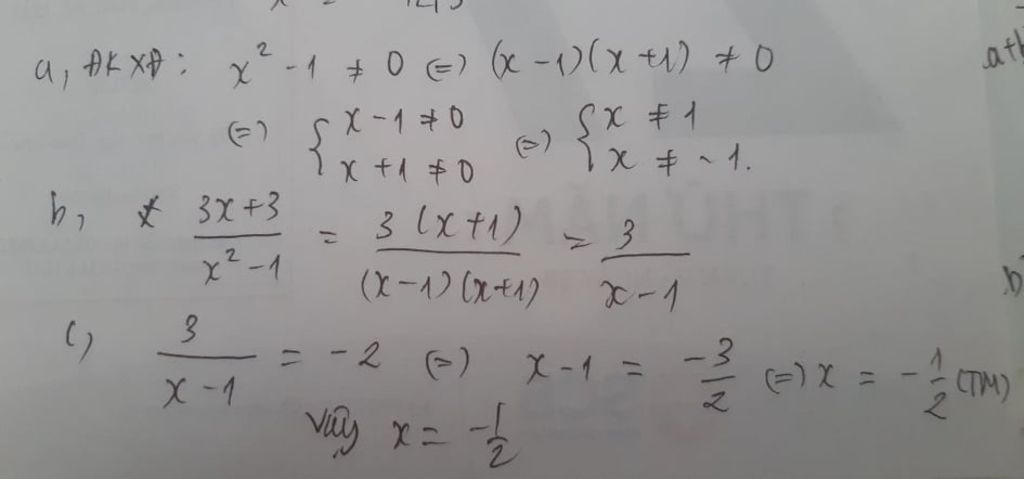 a, ĐKXĐ: x² - 1 ≠ 0 (=) (x - 1)(x + 1) ≠ 0
(=) { x - 1 ≠ 0 (=) { x ≠ 1
x + 1 ≠ 0 x ≠ -1.
b, (3x+3)/(x² - 1) = 3(x+1)/((x-1)(x+1)) = 3/(x-1)
c, 3/(x-1) = -2 (=) x - 1 = -3/2 (=) x = -1/2 (TM)
Vậy x = -1/2